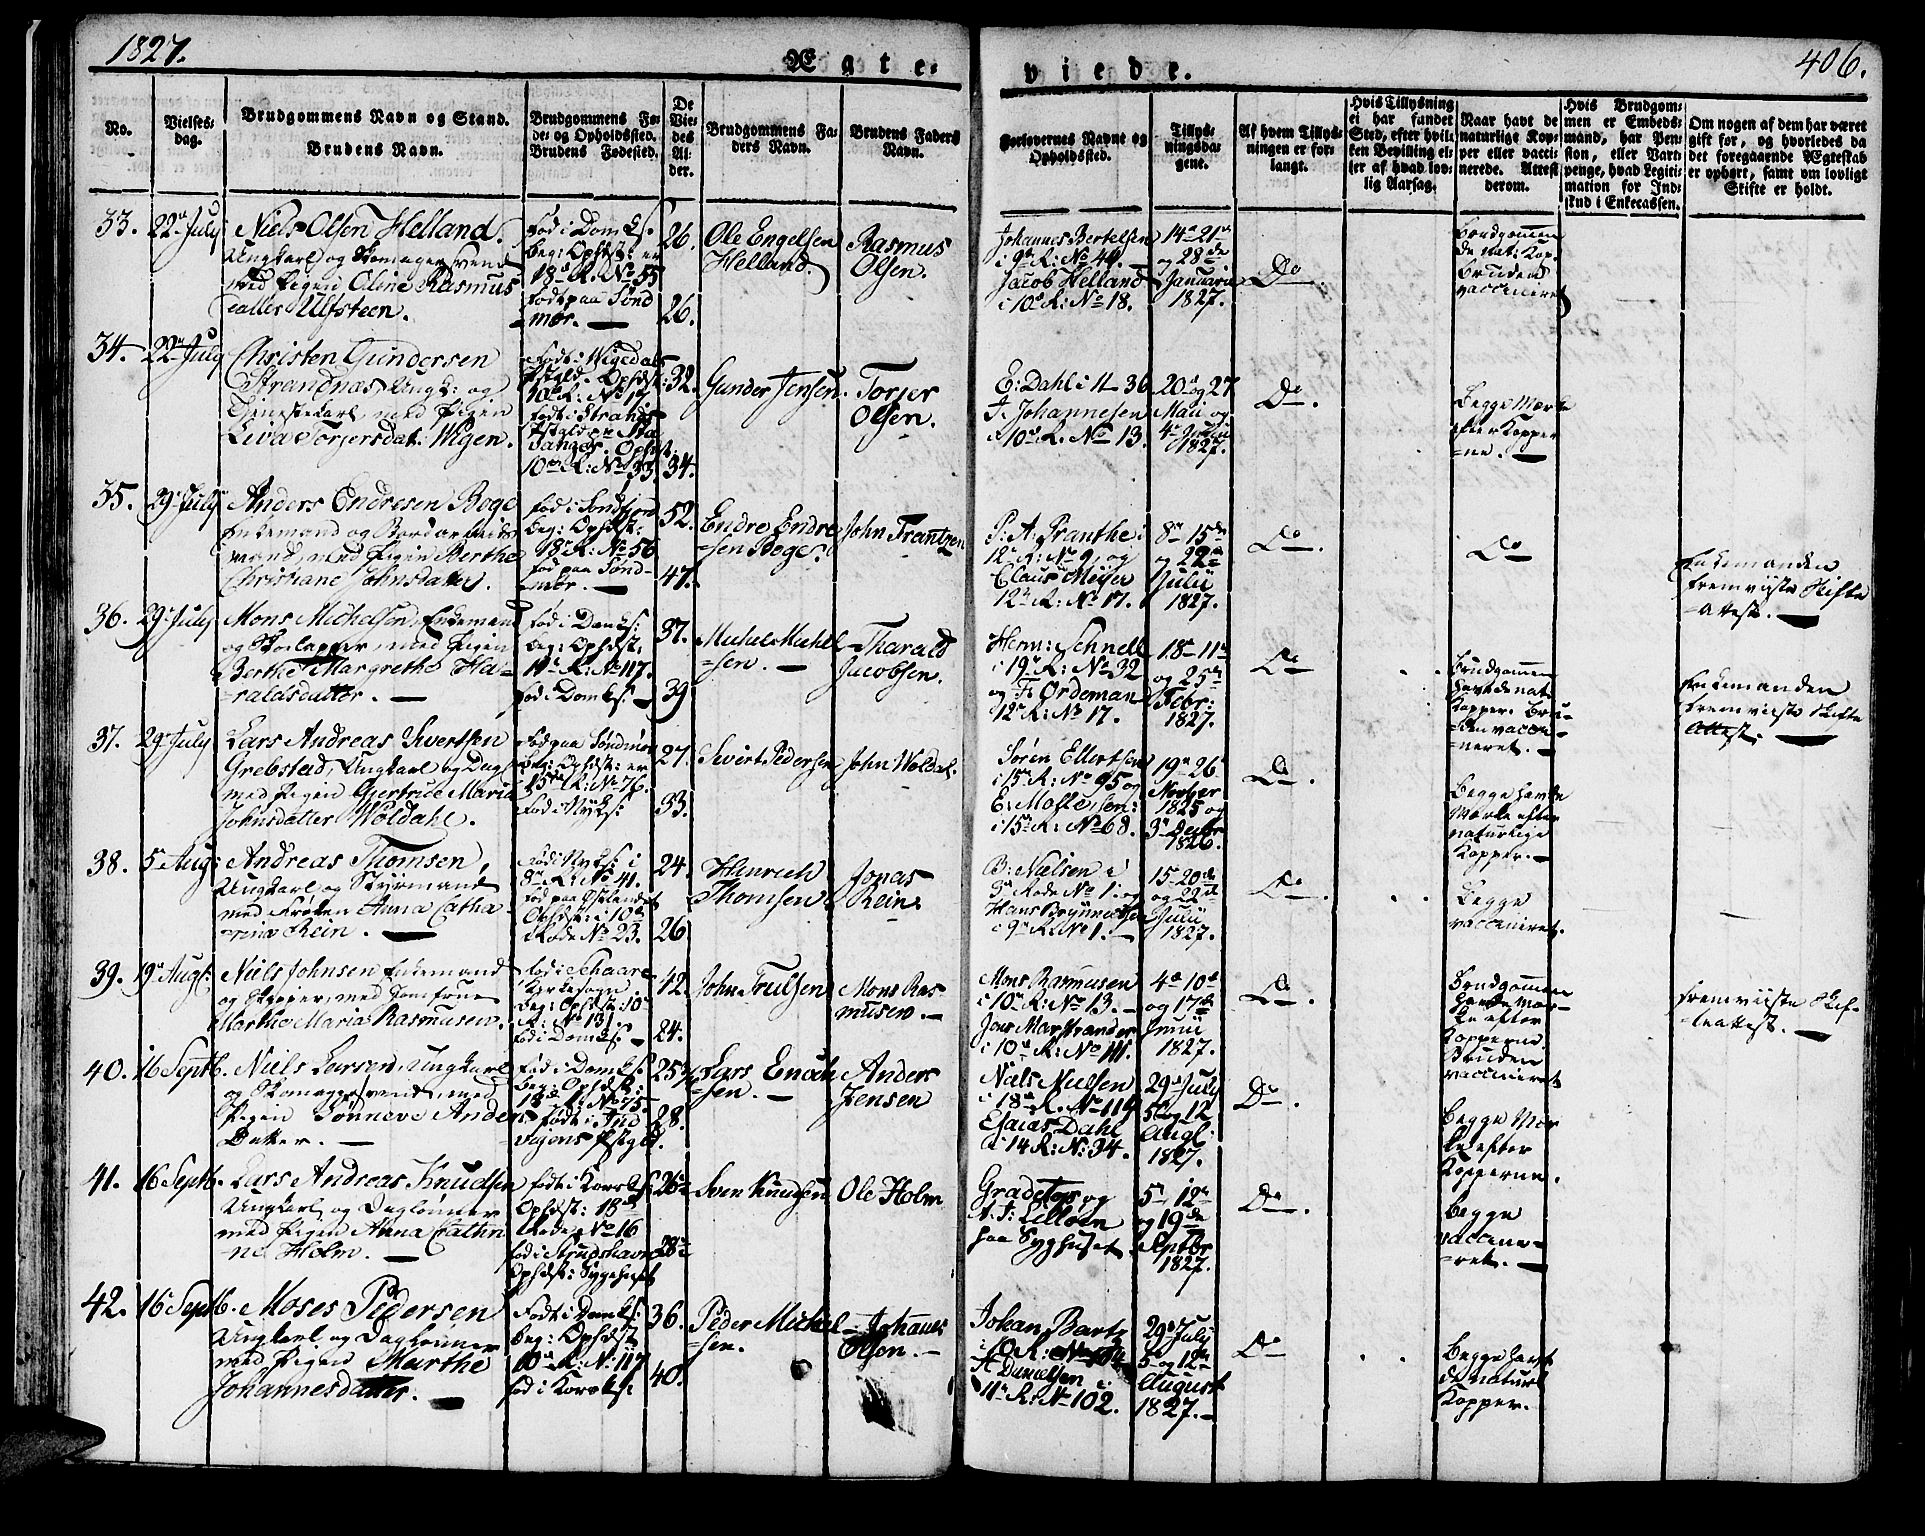 1827.
Ægte-
viede.
406.
No.
Vielses-
dag.
Brudgommens Navn og Stand.
Brudens Navn.
Brudgommens Fø-
de- og Opholdssted.
Brudens Fødested.
De
Vie-
des
Al-
der.
Brudgommens Fa-
ders Navn.
Brudens Faders
Navn.
Forlovernes Navne og
Opholdssted.
Tillys-
ningsda-
gene.
Af hvem Tillys-
ningen er for-
langt.
Hvis Tillysning
ei har fundet
Sted, efter hvil-
ken Bevilling el-
ler af hvad lov-
lig Aarsag.
Naar havt de
naturlige Kop-
per eller vacci-
nerede. Attest
derom.
Hvis Brudgom-
men er Embeds-
mand, har Pen-
sion, eller Vart-
penge, hvad Legiti-
mation for Ind-
skud i Enkecassen.
Om nogen af dem har været
gift før, og hvorledes da
det foregaaende Ægteskab
er ophørt, samt om lovligt
Skifte er holdt.
33. 22de July
Niels Olsen Helland.
Ungkarl og Skomagersvend
med Pigen Oline Rasmus
=datter Ulfsteen.
Fød i Domk S.
beg: Ophst: er
18de R. No 55
født paa Sønd
=mør.
26.
26.
Ole Engelsen
Helland.
Rasmus
Olsen.
Johannes Bertelsen
i 9de R: No 44.
Jacob Helland
i 10de R: No 18.
14de 21de
og 28de
Januarii
1827.
Do
Brudgommen
de nat: Kop.
Bruden
vaccineret
34. 22de July
Christen Gundersen
Strandnæs, Ungk: og
Tjenestekarl, med Pigen
Liva Torjersdat: Wigen.
10de R: No 33.
32.
34.
Gunder Jensen.
Torjer
Olsen.
E: Dahl i 11 36
T. Johannesen
i 10de R. No 13.
20de og 27
Maii og
1827.
Do.
Begge Mærke
efter Kopper
=ne.
35. 29de July
Anders Endresen Boge
Enkemand og Bordarbeids
mand, med Pigen Berthe
Christiane Johnsdatter.
fød i Sondfjord
beg: Ophst:
18de R: No 56
fød paa Sønd-
=mør.
52.
47.
Endre Endre
=sen Boge.
John Frantzen
P: A: Pranthe i
12de R: No 9, og
Claus Meyer
12te R: No 17.
8de 15de
og 22de
Julii
1827.
Do.
Do
Enkemanden
fremviiste Skifte
=Attest.
36. 29de July
Mons Michelsen, Enkemand
og Skoelapper, med Pigen
Berthe Margrethe Ha-
=raldsdatter.
fød i Domks:
beg: Ophst:
11te R: No 117.
fød i Domks:
37.
39
Michel Michel
=sen.
Tharald
Jacobsen.
Herm: Schnell
i 19de R: No 32
og F: Ordeman
i 12te R: No 17.
18de 11te
og 25de
Febr:
1827.
Do
Brudgommen
havde nat.
Kopper. Bru-
=den vacci-
neret.
Enkemanden
fremviiste Skifte
Attest.
37. 29de July
Lars Andreas Sivertsen
Grebstad, Ungkarl og Dag
med Pigen Gjertrude Maria
Johnsdatter Woldahl.
Fød paa Søndmør
beg: Ophst: er
15de R: No 76.
fød i NykS:
27.
33.
Sivert Pedersen
John Woldal.
Søren Ellertsen
i 15de R: No 95 og
i 15de R: No 68.
19de 26de
Novber
1825 og
3de Decbr
1826.
Do
Begge havde
Mærke efter
naturlige
Kopper.
38. 5te Aug:
Andreas Thomsen,
Ungkarl og Styrmand
med Frøken Anna Catha-
=rina Rein.
Fød i NykS: i
8de R: No 41.
fød paa
Ophst: i 10de
Rode No 23.
24.
26
Hinrich
Thomsen.
Jonas
Rein.
B: Nielsen i
3de Rode No 1. og
i 9de R: No 1.
15de 20de
og 22de
Julii
1827.
Do.
Begge
vaccineret.
39. 19de Augl:
Niels Johnsen Enkemand
og Skipper, med Jomfrue
Marthe Maria Rasmusen.
fød i Schaare
Kirkesogn.
beg: Ophst: 10de
R: No 131
fød i Domks:
42.
24.
John Trulsen
Mons Ras-
musen.
Mons Rasmusen
i 10de R: No 13.
Jens Marstrander
i 10de R: No 111.
4de 10de
og 17de
Junii
1827.
Do.
Brudgommen
havde Mær-
ke efter
Kopperne
Bruden
vaccineret
fremviiste Skif-
teattest.
40. 16 Septb.
Niels Larsen, Ungkarl
og Skomagersvend, med
Pigen Sønneve Anders
Datter.
Fød i Domks:
beg: Ophst:
13de R. No 75.
født i Ind
28.
Lars Enoch
=sen.
Anders
Jensen
Niels Nielsen
i 18de R. No 114
Esaias Dahl
i 14 R: N: 34.
29de July
5te og 12
Augl:
1827.
Do.
Begge Mær
ke efter
Kopperne.
41. 16 Septb.
Lars Andreas Knudsen
Ungkarl og Dagløner
med Pigen Anna Cathri
=ne Holm.
født i KorskS.
Ophst: 18de
Rode No 16
Ophst: Sygehuset
Sven Knudsen
Ole Holm
paa Syghuset
5te 12te
og 19de
Septbr
1827.
Do.
Begge
vaccine-
=ret.
42. 16 Septb.
Moses Pedersen
Ungkarl og Daglønner
med Pigen Marthe
Johannesdatter.
Født i Domks:
beg: Ophst
10de R: N: 117
fød i Korsks:
36.
40.
Peder Michel
=sen.
Johanes
Olsen.
Johan Bartz
i 10 R:
A Danielsen i
11te R: No 102.
29de July
5te og 12te
August
1827.
Do
Begge havt
de naturl
Kopper.